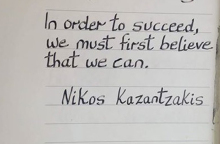 In order to succeed,
we must first believe
that we can.
Nikos Kazantzakis